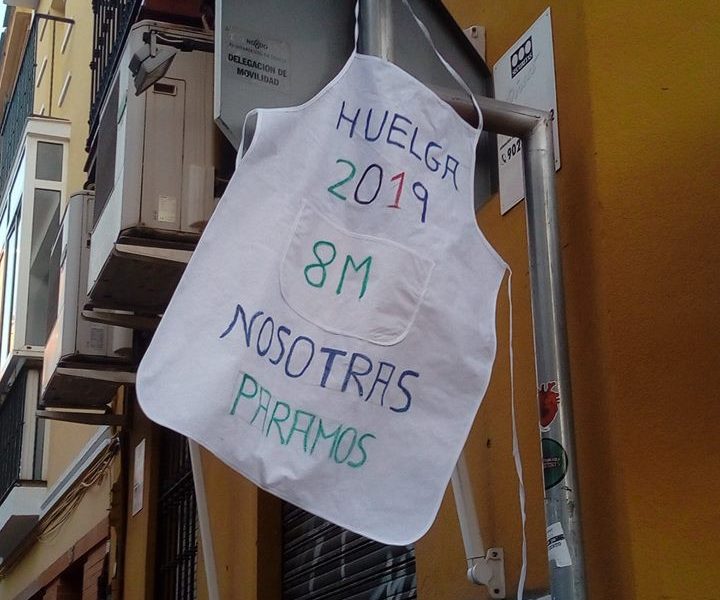 NO8DO
DELEGACIÓN DE
MOVILIDAD
HUELGA
2019
8M
NOSOTRAS
PARAMOS
902